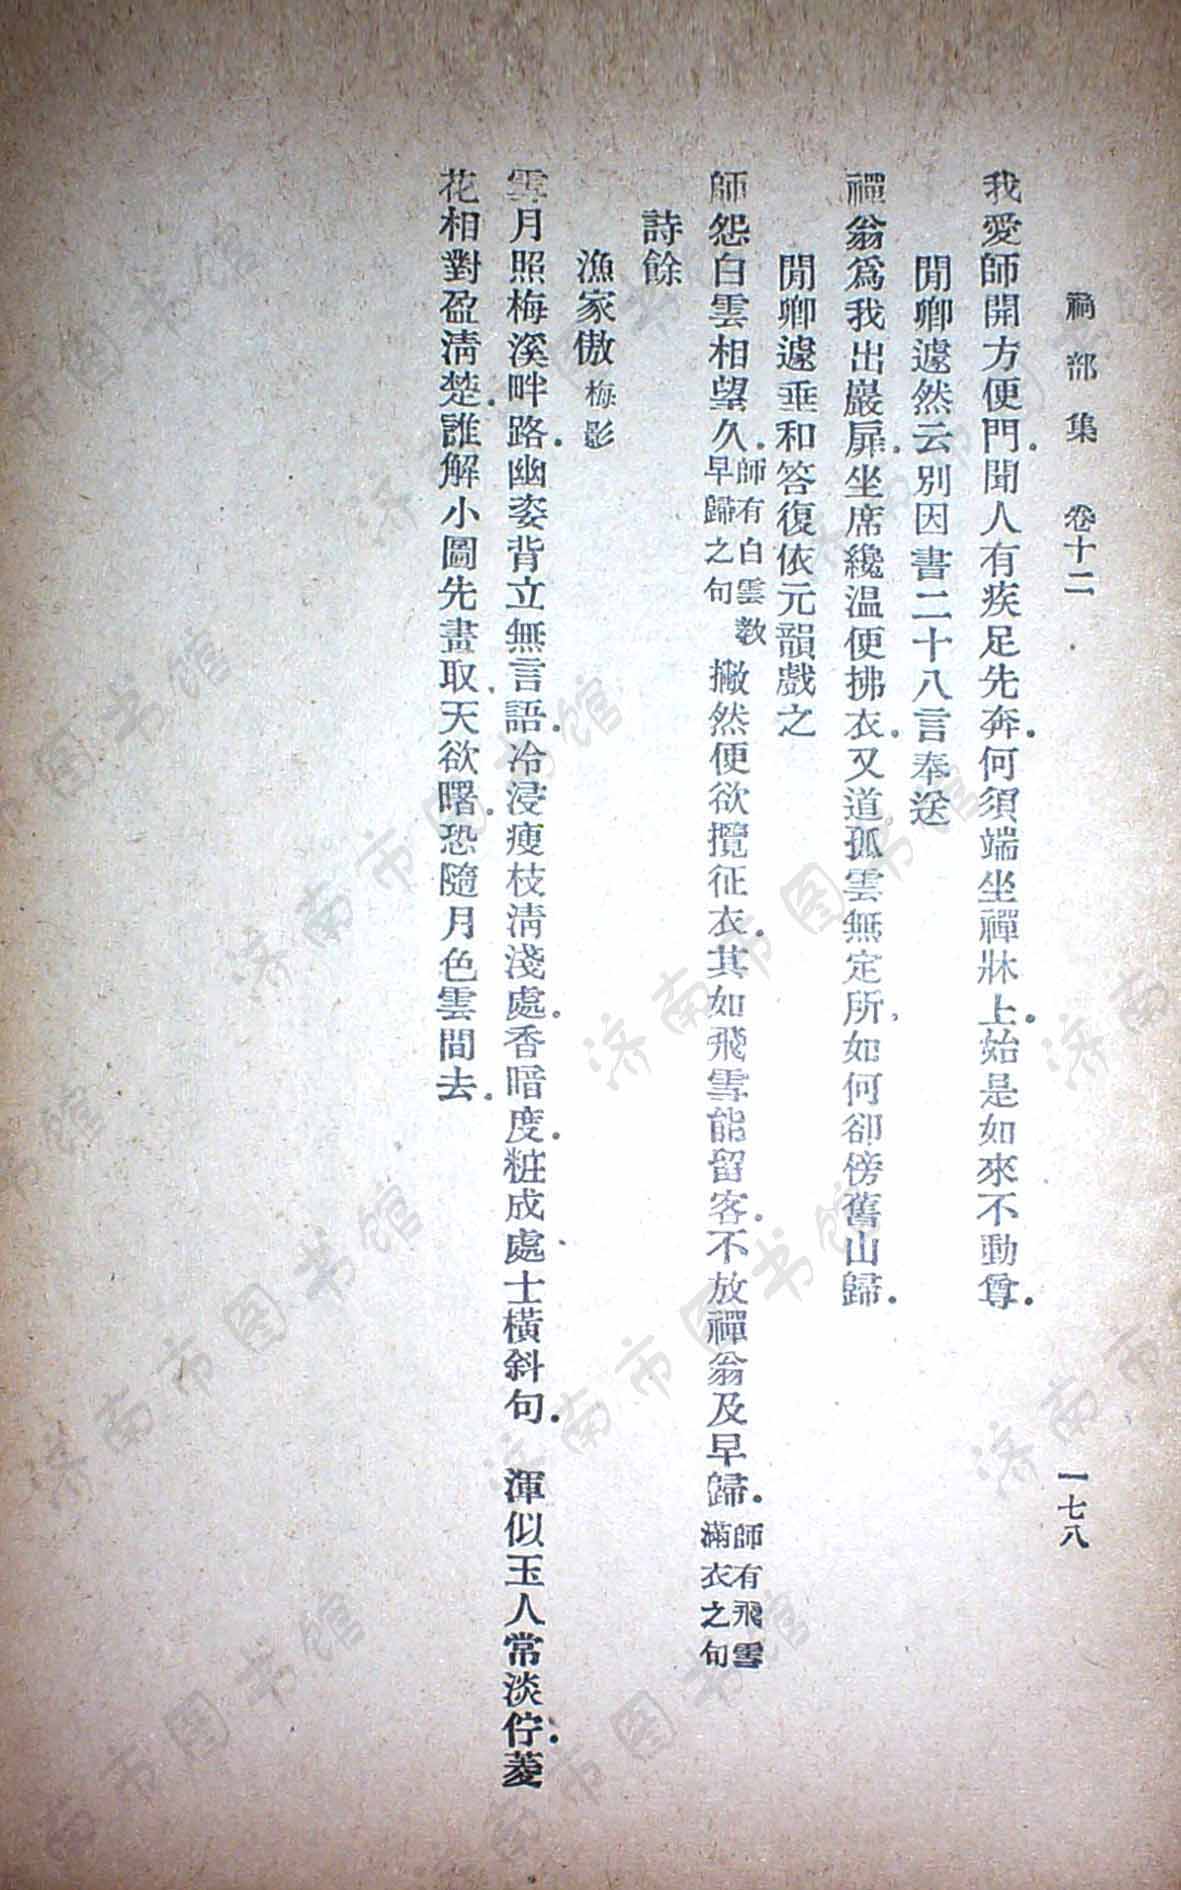 祠部集 卷十二 一七八
我愛師開方便門。聞人有疾足先奔。何須端坐禪牀上。始是如來不動尊。
閒卿遽然云別因書二十八言奉送
禪翁爲我出巖扉。坐席纔溫便拂衣。又道孤雲無定所。如何卻傍舊山歸。
閒卿遽垂和答復依元韻戲之
師怨白雲相望久。師有白雲敎早歸之句 撇然便欲攬征衣。其如飛雪能留客。不放禪翁及早歸。師有飛雪滿衣之句
詩餘
漁家傲 梅影
雲月照梅溪畔路。幽姿背立無言語。冷浸瘦枝淸淺處。香暗度。粧成處士橫斜句。 渾似玉人常淡佇。菱
花相對盈淸楚。誰解小圖先畫取。天欲曙。恐隨月色雲間去。
济南市图书馆